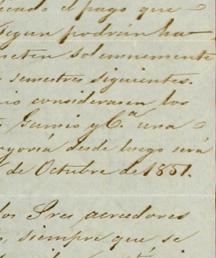 el pago que
segun podrán ha-
solemnemente
semestres siguientes.
considerasen los
Gumio y Cª una
mayoria desde luego será
de Octubre de 1851.
los Sres acreedores
siempre que se